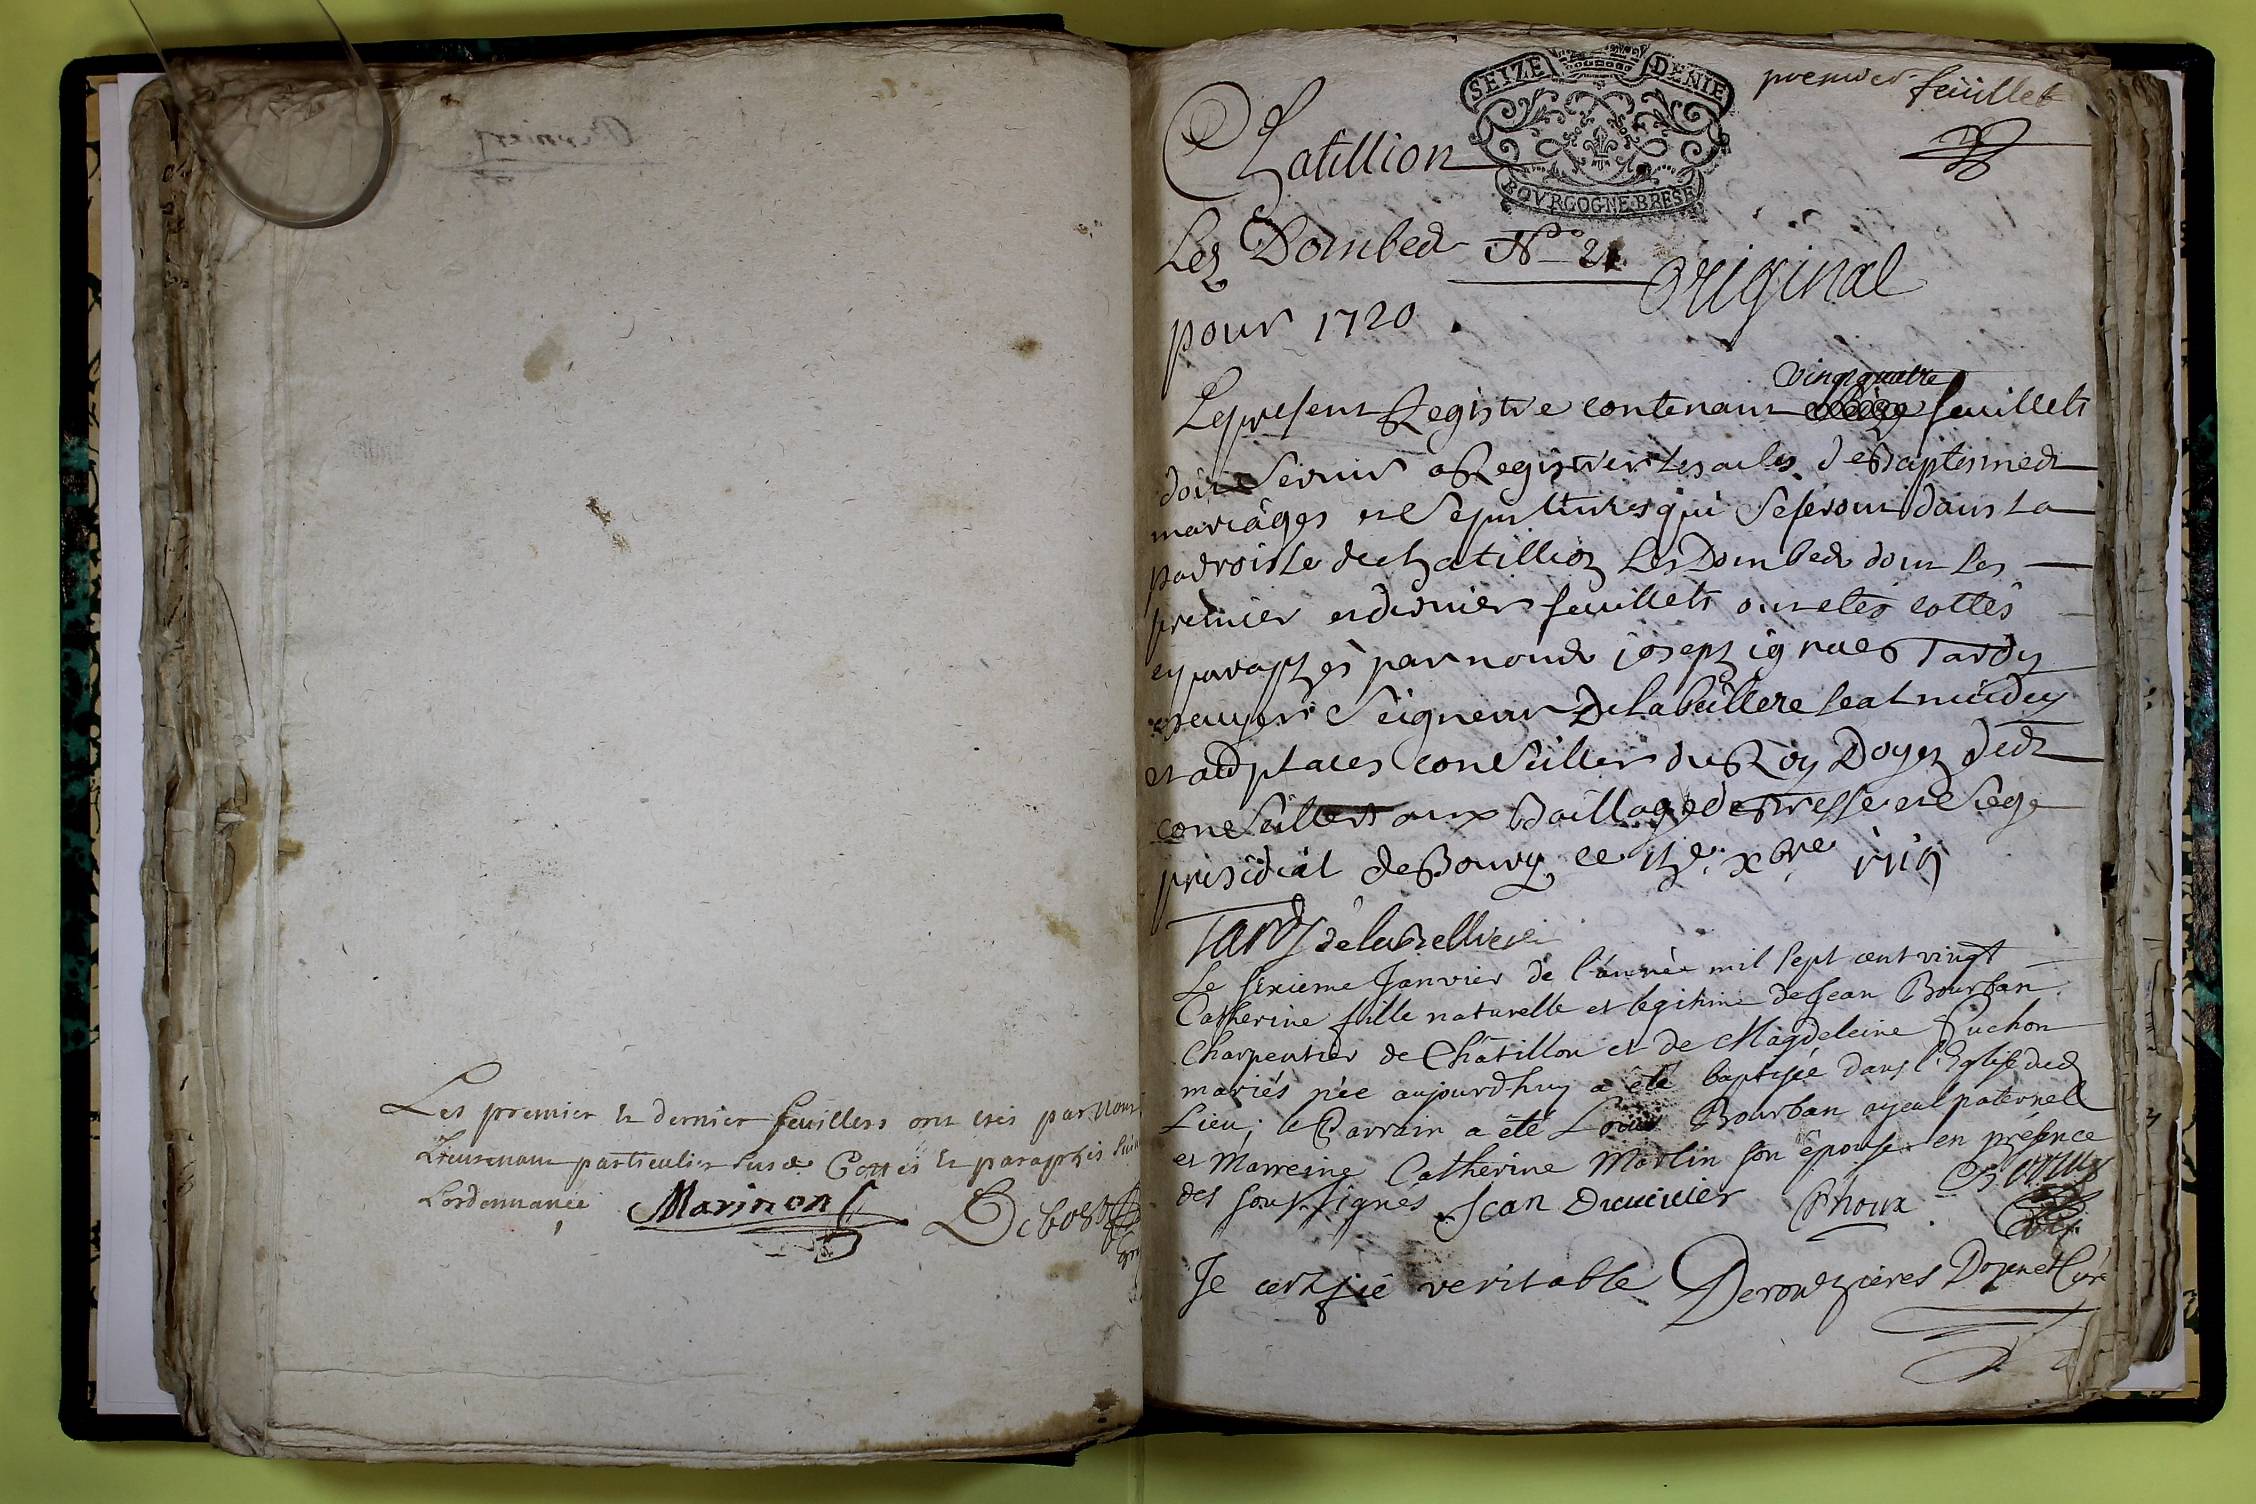 Les premier & dernier feuillets ont etés par Nous
Lieutenant particulier susd. Cottés & paraphés suiv
L'ordonnance
Marinon
SEIZE DENIE
BOVRGOGNE BRESE
premier feuillet
Chatillion
Les Dombes N° 21
original
pour 1720
vingt quatre
Le present Registre contenant feuillets
doit servir a Registrer les actes de Baptesmes
mariages et sepultures qui se feront dans la
parroisse de chatillion Les Dombes dont les
premier et dernier feuillets ont etés cottés
et paraphés par nous joseph ignace Tardy
escuyer seigneur De labeillere
et aud places conseiller du Roy Doyen des
conseillers aux Baillage de Bresse et siege
presidial de Bourg ce xbre 1719
Tardy de la Bellvere
Le sixieme Janvier de l'année mil sept cent vingt
Catherine fille naturelle et legitime de Jean Bourban
Charpentier de Châtillon et de Magdeleine Puchon
mariés née aujourdhuy a été baptisée dans l'Eglise dud
Lieu; le Parrain a été Louis Bourban ayeul paternel
et Marreine Catherine Morlin son épouse en présence
des soussignés Jean Phoux
Je certifie veritable Derouzières Doyen et Curé